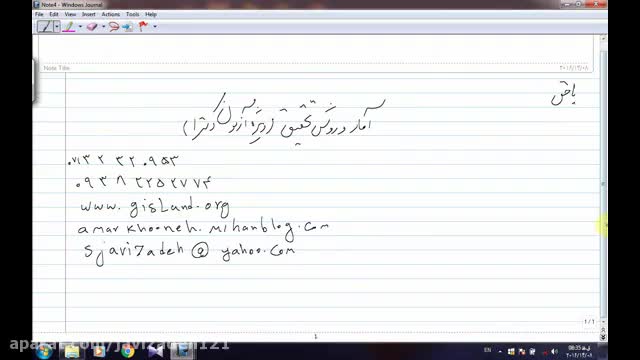 Note4 - Windows Journal
File Edit View Insert Actions Tools Help
Note Title
۲۰۱۶/۱۲/۰۸
آمار و روش تحقیق (ویژه آزمون دکترا)
۰۷۱۳۲ ۳۲۰۹۵۳
۰۹۳۸ ۲۲۵۲۷۷۴
www.gisland.org
amarkhooneh.mihanblog.com
sjavizadeh@yahoo.com
1 / 1
1
aparat.com/javizadeh121
EN
08:35 ق.ظ
۲۰۱۶/۱۲/۰۸